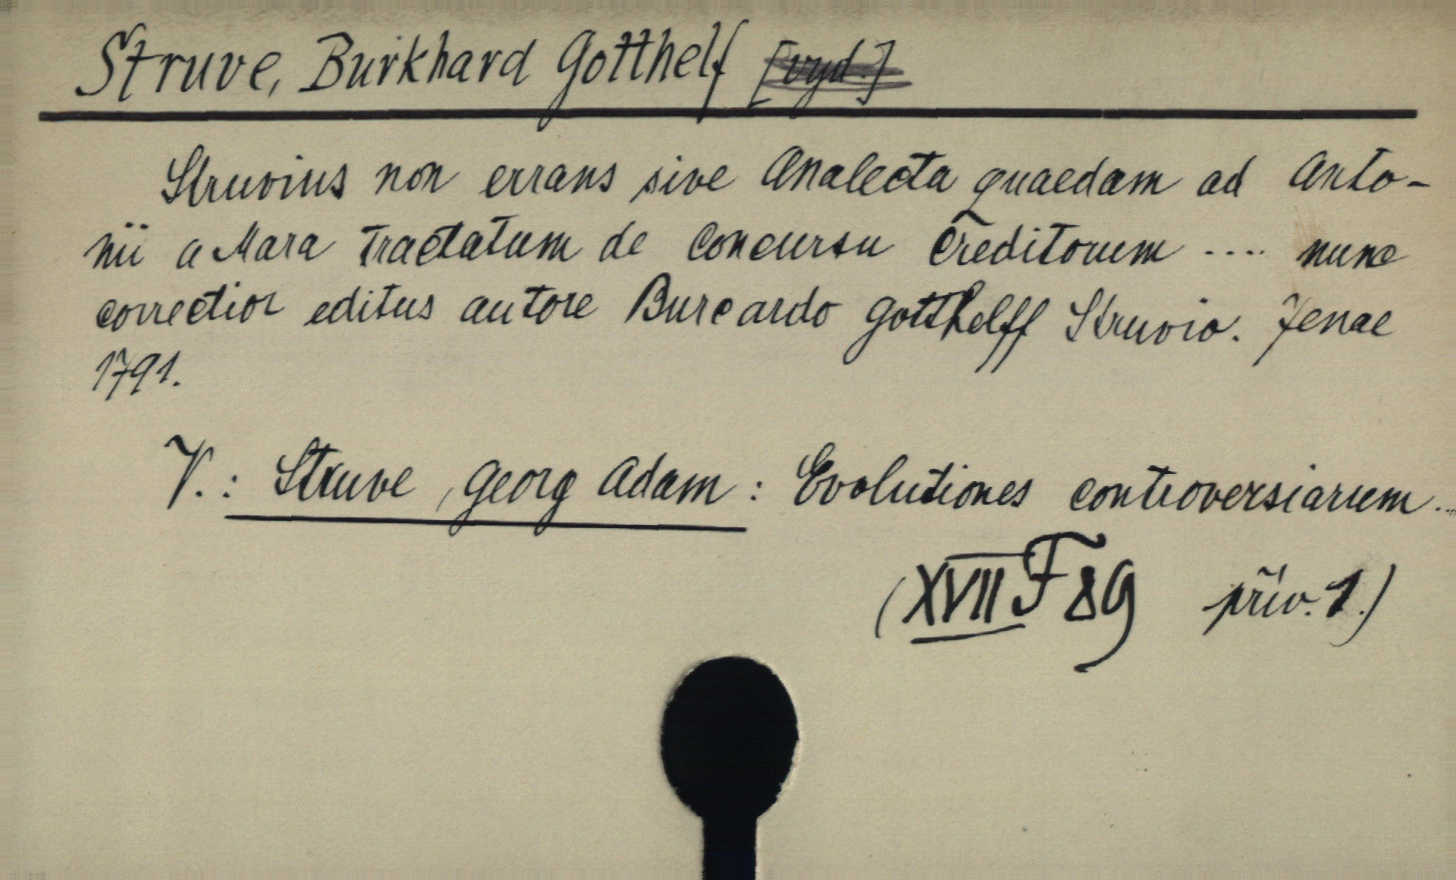 Struve, Burkhard Gotthelf [vyd.]
Struvius non errans sive Analecta quaedam ad Anto-
nii a Mara Tractatum de Concursu Creditorum .... nunc
correctior editus autore Burcardo Gotthelff Struvio. Jenae
1791.
V.: Struve, Georg Adam: Evolutiones controversiarum...
(XVII F 89 přív. 1.)